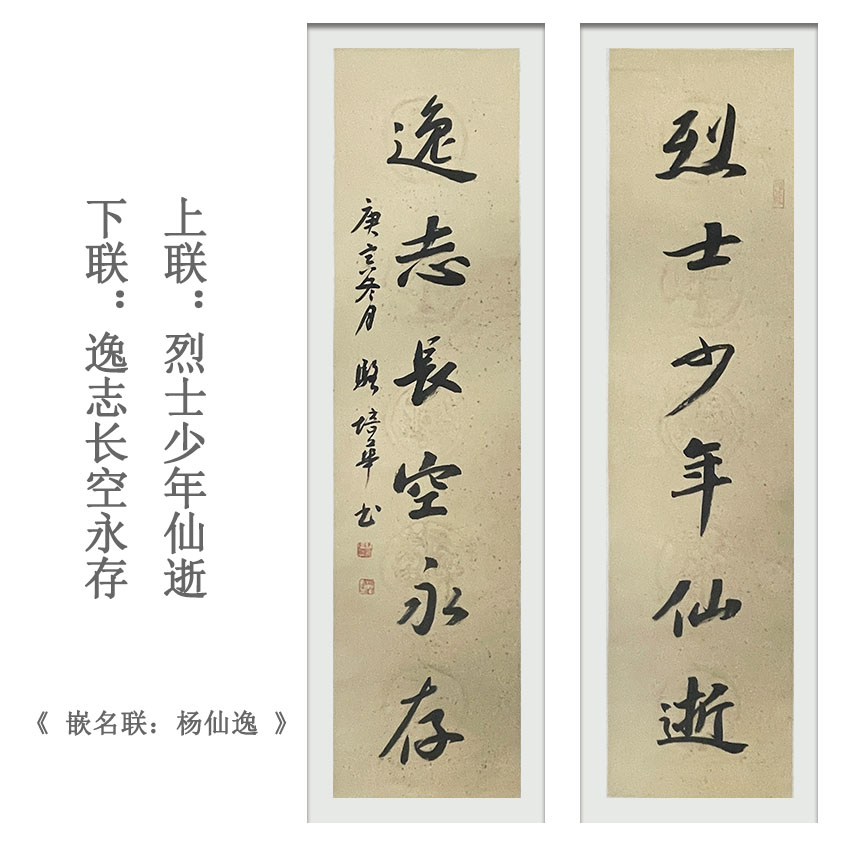 上联：烈士少年仙逝
下联：逸志长空永存
《 嵌名联：杨仙逸 》
烈士少年仙逝
逸志長空永存
庚 冬月 培華书